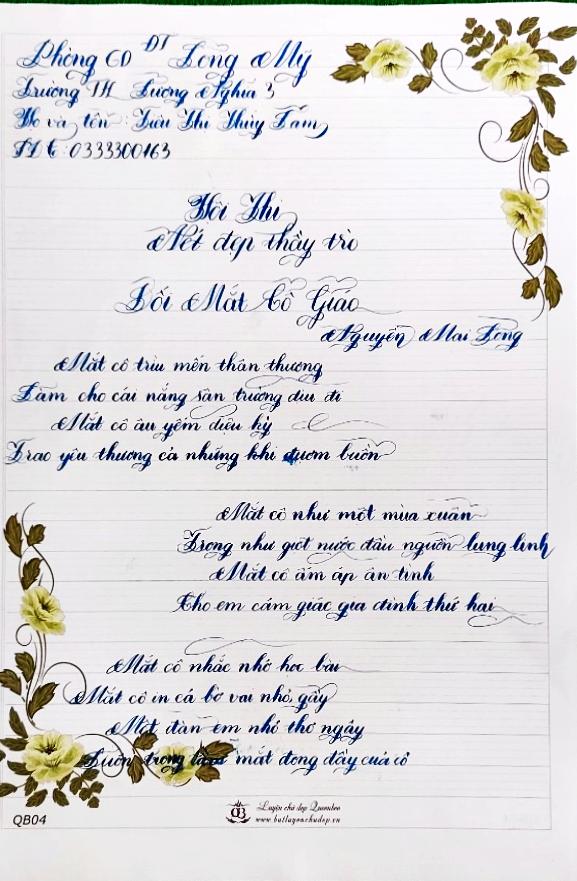 Phòng GD ĐT Long Mỹ
Trường TH Lương Nghĩa 3
Họ và tên: Liêu Thị Thúy Tâm
0333300163
Hội Thi
Nét đẹp thầy trò
Đôi Mắt Cô Giáo
Nguyễn Mai Long
Mắt cô trìu mến thân thương
Làm cho cái nắng sân trường dịu đi
Mắt cô âu yếm diệu kỳ
Trao yêu thương cả những khi đượm buồn
Mắt cô như một mùa xuân
Trong như giọt nước đầu nguồn lung linh
Mắt cô ấm áp ân tình
Cho em cảm giác gia đình thứ hai
Mắt cô nhắc nhở học bài
Mắt cô in cả bờ vai nhỏ, gầy
Một đàn em nhỏ thơ ngây
Luôn trong mắt đong đầy của cô
Luyện chữ đẹp Quanbeo
www.butluyenchudep.vn
QB
QB04